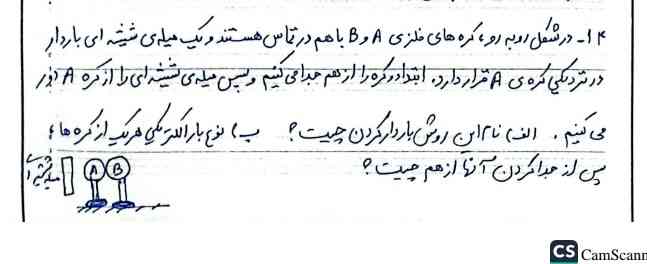 ۱۴- در شکل روبه رو، کره های فلزی A و B با هم در تماس هستند و یک میله ی شیشه ای باردار
در نزدیکی کره ی A قرار دارد. ابتدا دو کره را از هم جدا می کنیم و سپس میله ی شیشه ای را از کره A دور
می کنیم. الف) نام این روش باردار کردن چیست؟ ب) نوع بار الکتریکی هر یک از کره ها
پس از جدا کردن آنها از هم چیست؟
میله شیشه ای
A B
CS CamScann